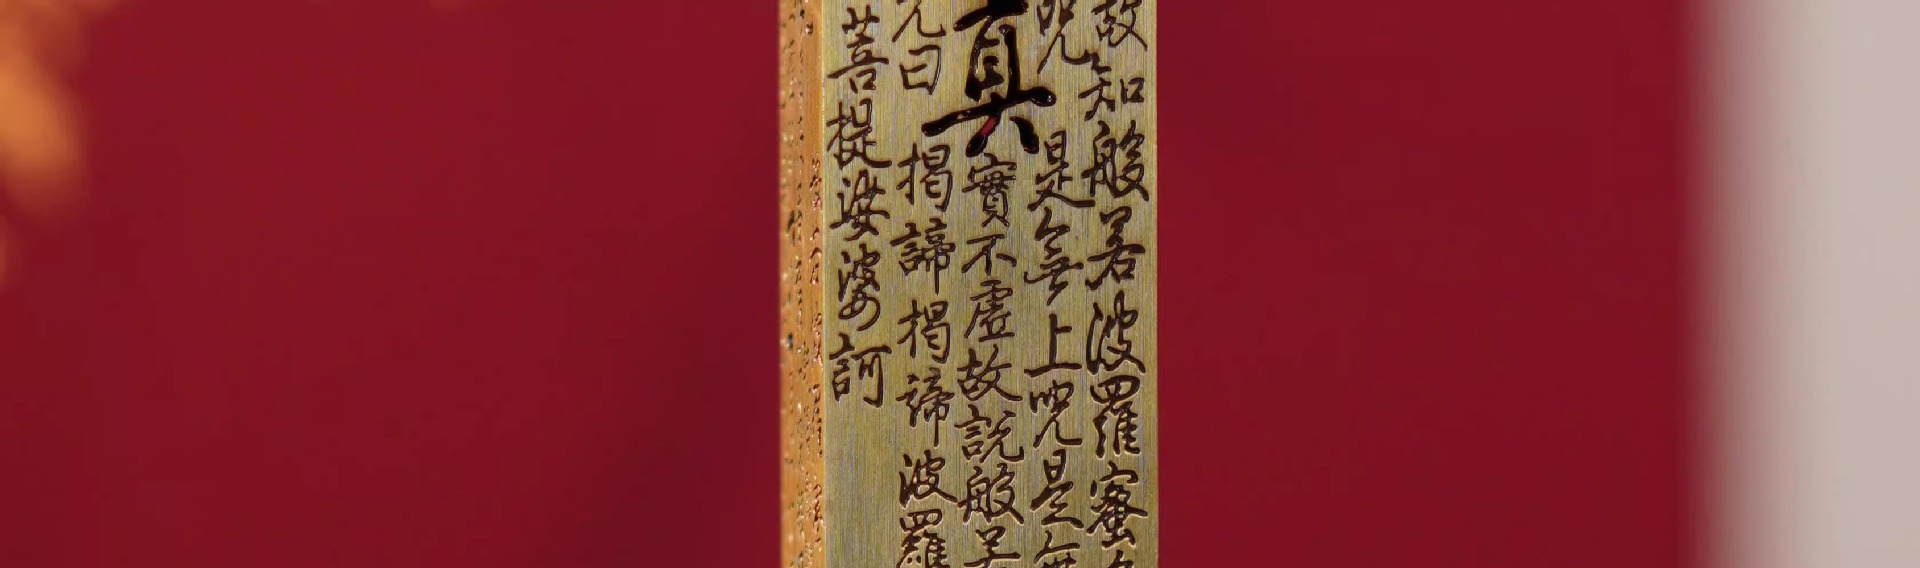 故知般若波羅蜜
呪是無上呪是無
真實不虛故說般若
曰揭諦揭諦波羅
菩提娑婆訶